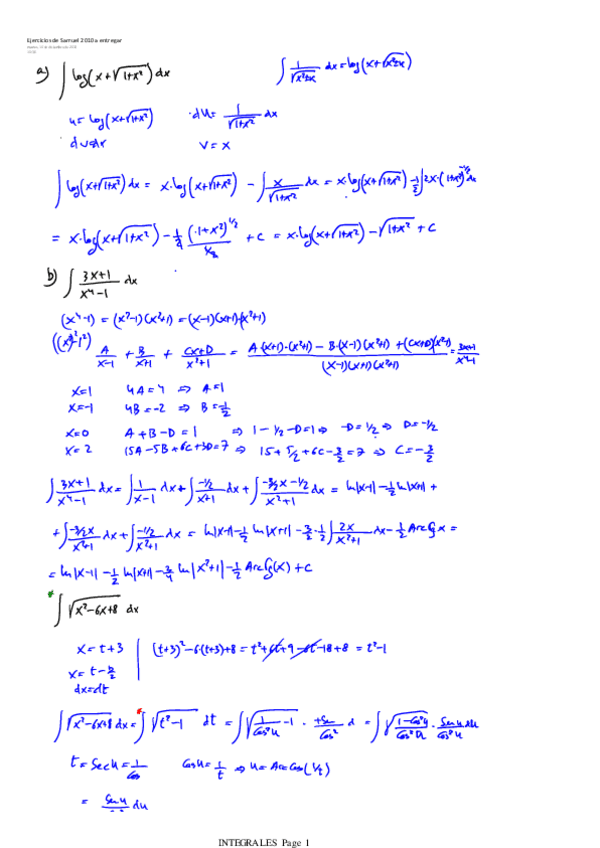 Ejercicios de Samuel 2010 a entregar
a) ∫ log(x+√(1+x²)) dx
u = log(x+√(1+x²))   du = 1/√(1+x²) dx
dv=dx   v = x
∫ log(x+√(1+x²)) dx = x·log(x+√(1+x²)) − ∫ x/√(1+x²) dx = x·log(x+√(1+x²)) − 1/2 ∫ 2x·(1+x²)^(-1/2) dx
= x·log(x+√(1+x²)) − 1/2 (1+x²)^(1/2)/(1/2) + C = x·log(x+√(1+x²)) − √(1+x²) + C
b) ∫ (3x+1)/(x⁴−1) dx
(x⁴−1) = (x²−1)(x²+1) = (x−1)(x+1)(x²+1)
A/(x−1) + B/(x+1) + (Cx+D)/(x²+1) = (A·(x+1)·(x²+1) − B·(x−1)(x²+1) + (Cx+D)(x²−1))/((x−1)(x+1)(x²+1)) = (3x+1)/(x⁴−1)
x=1   4A=4 ⇒ A=1
x=−1   4B=−2 ⇒ B=−1/2
x=0   A+B−D=1 ⇒ 1−1/2−D=1 ⇒ −D=1/2 ⇒ D=−1/2
x=2   15A−5B+6C+3D=7 ⇒ 15+5/2+6C−3/2=7 ⇒ C=−3/2
∫ (3x+1)/(x⁴−1) dx = ∫ 1/(x−1) dx + ∫ (−1/2)/(x+1) dx + ∫ (−3/2x−1/2)/(x²+1) dx = ln|x−1| − 1/2 ln|x+1| +
+ ∫ (−3/2x)/(x²+1) dx + ∫ (−1/2)/(x²+1) dx = ln|x−1| − 1/2 ln|x+1| − 3/2·1/2 ∫ 2x/(x²+1) dx − 1/2 Arctg x =
= ln|x−1| − 1/2 ln|x+1| − 3/4 ln|x²+1| − 1/2 Arctg(x) + C
∫ √(x²−6x+8) dx
x = t+3   (t+3)²−6·(t+3)+8 = t²+6t+9−6t−18+8 = t²−1
x = t−b/2
dx=dt
∫ √(x²−6x+8) dx = ∫ √(t²−1) dt = ∫ √(1/cos²u −1) · +sen/cos² d = ∫ √((1−cos²u)/cos²u) · sen u du/cos²u
t = sec u = 1/cos   cos u = 1/t ⇒ u = Arccos(1/t)
= sen u du
INTEGRALES Page 1